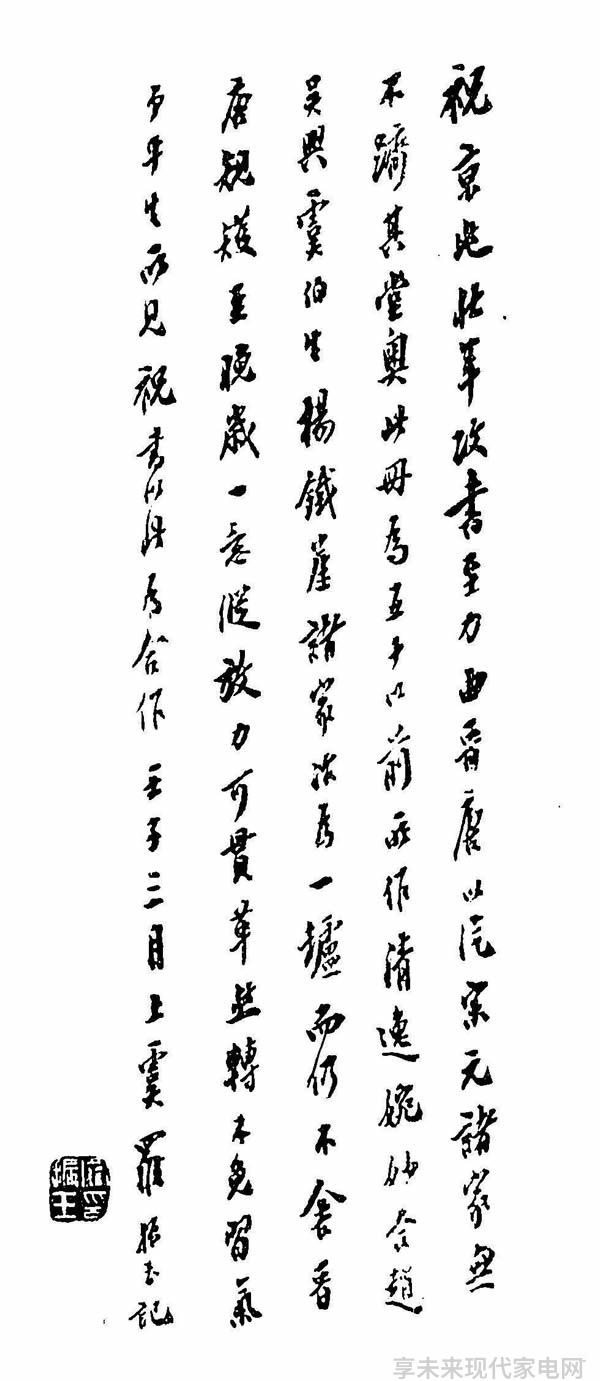 祝京兆壯年攻書至力由晉唐以迄宋元諸家無
不躋其堂奧此冊為五十以前所作清逸婉妙合趙
吳興虞伯生楊鐵崖諸家法為一鑪而仍不舍晉
唐規矱至晚歲一意縱放力可貫革然轉不免習氣
予平生所見祝書以此為合作 壬子三月上虞羅振玉記
享未来现代家电网